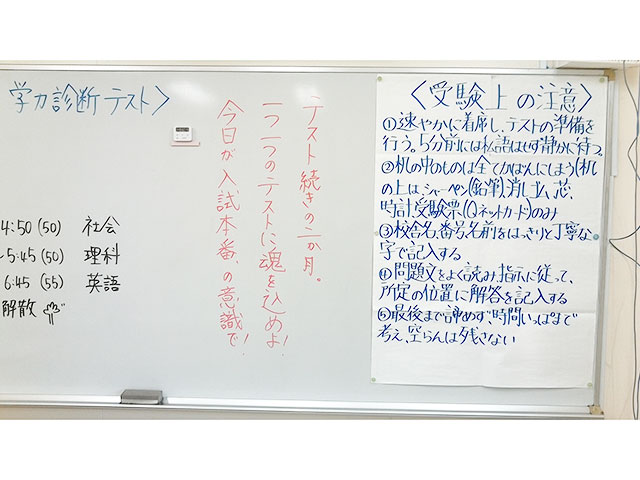 学力診断テスト〉
4:50 (50) 社会
~5:45 (50) 理科
6:45 (55) 英語
解散
テスト続きの一か月。
一つ一つのテストに魂を込めよ!
今日が入試本番、の意識で!
〈受験上の注意〉
①速やかに着席し、テストの準備を
行う。5分前には私語はせず静かに待つ。
②机の中のものは全てかばんにしまう(机
の上は、シャーペン(鉛筆)、消しゴム、芯、
時計、受験票(Qネットカード)のみ
③校舎名、番号、名前をはっきりと丁寧な
字で記入する
④問題文をよく読み、指示に従って、
所定の位置に解答を記入する
⑤最後まで諦めず、時間いっぱいまで
考え、空らんは残さない